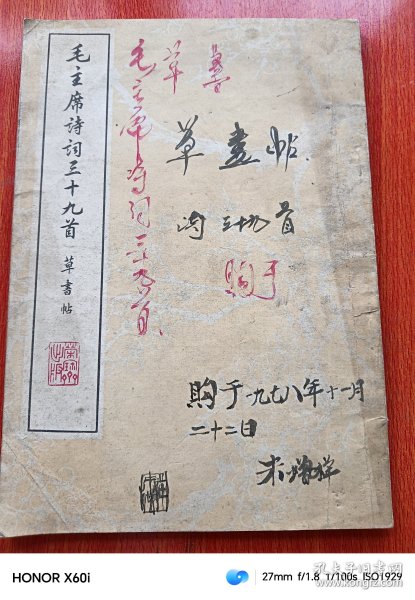 毛主席诗词三十九首 草书帖
荣宝斋出版
草書
毛主席诗词三十九首
草畫帖
词三十九首
购于
购于一九七八年十一月
二十二日
朱增祥
孔夫子旧书网
HONOR X60i
27mm f/1.8 1/100s ISO1929